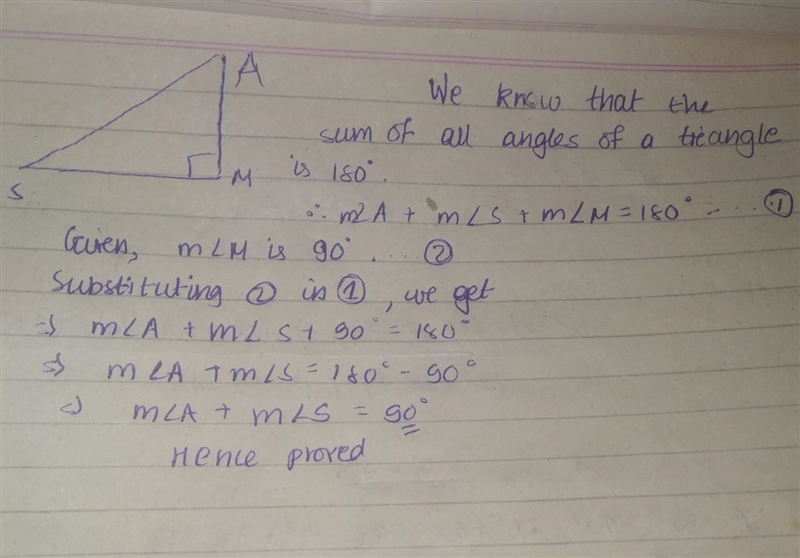 A
S
M
We know that the
sum of all angles of a triangle
is 180°.
∴ m∠A + m∠S + m∠M = 180° - ... ①
Given, m∠M is 90° ... ②
Substituting ② in ①, we get
⇒ m∠A + m∠S + 90° = 180°
⇒ m∠A + m∠S = 180° - 90°
⇒ m∠A + m∠S = 90°
Hence proved